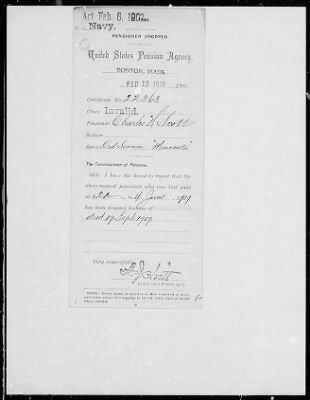 Act Feb. 6, 1907.
Navy.
PENSIONER DROPPED.
United States Pension Agency,
BOSTON, MASS.
Certificate No. 22,363
Class Invalid.
Pensioner Charles H.
Service Ord Seaman "Minnesota"
The Commissioner of Pensions.
SIR: I have the honor to report that the
above-named pensioner who was last paid
at $20, to 4 June, 1909
has been dropped because of
died 19 Sept 1909
Very respectfully,
United States Pension Agent.